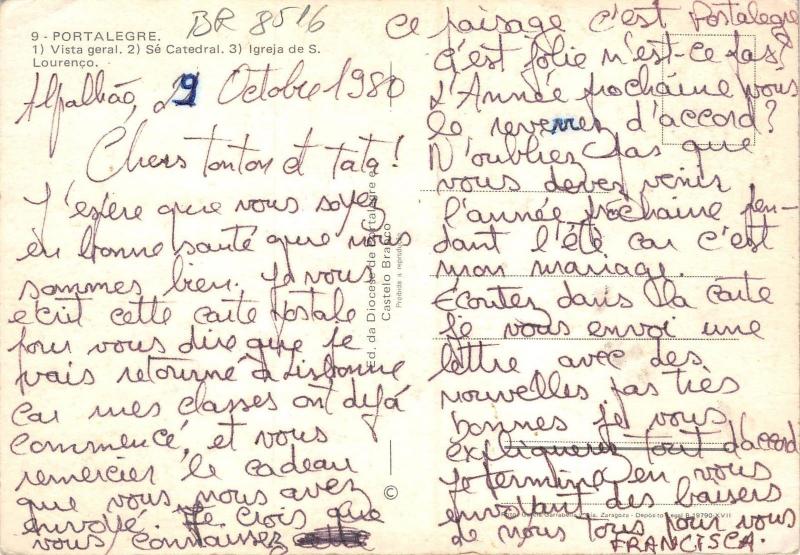 9 - PORTALEGRE.
BR 8516
1) Vista geral. 2) Sé Catedral. 3) Igreja de S.
Lourenço.
Alpalhão, 29 Octobre 1980
Chers tonton et tata!
J'espère que vous soyez
en bonne santé que nous
sommes bien. Je vous
ecrit cette carte postale
pour vous dire que je
vais retourné à Lisbonne
car mes classes ont dejá
commencé, et vous
remercier le cadeau
que vous nous avez
envoyé. Je crois que
vous connaissez
Ed. da Diocese de Portalegre e
Castelo Branco
Proibida a reprodução
©
ce paisage c'est Portalegre
c'est folie n'est-ce pas?
L'Année prochaine vous
le reverrez d'accord?
N'oubliez pas que
vous devez venir
l'année prochaine pen-
dant l'été car c'est
mon mariage.
Écoutez dans la carte
je vous envoi une
lettre avec des
nouvelles pas très
bonnes je vous
expliquerez tout d'accord
Je termine en vous
envoyant des baisers
de nous tous pour vous
FRANCISCA.
Zaragoza - Depósito Legal B. 19790-XVII